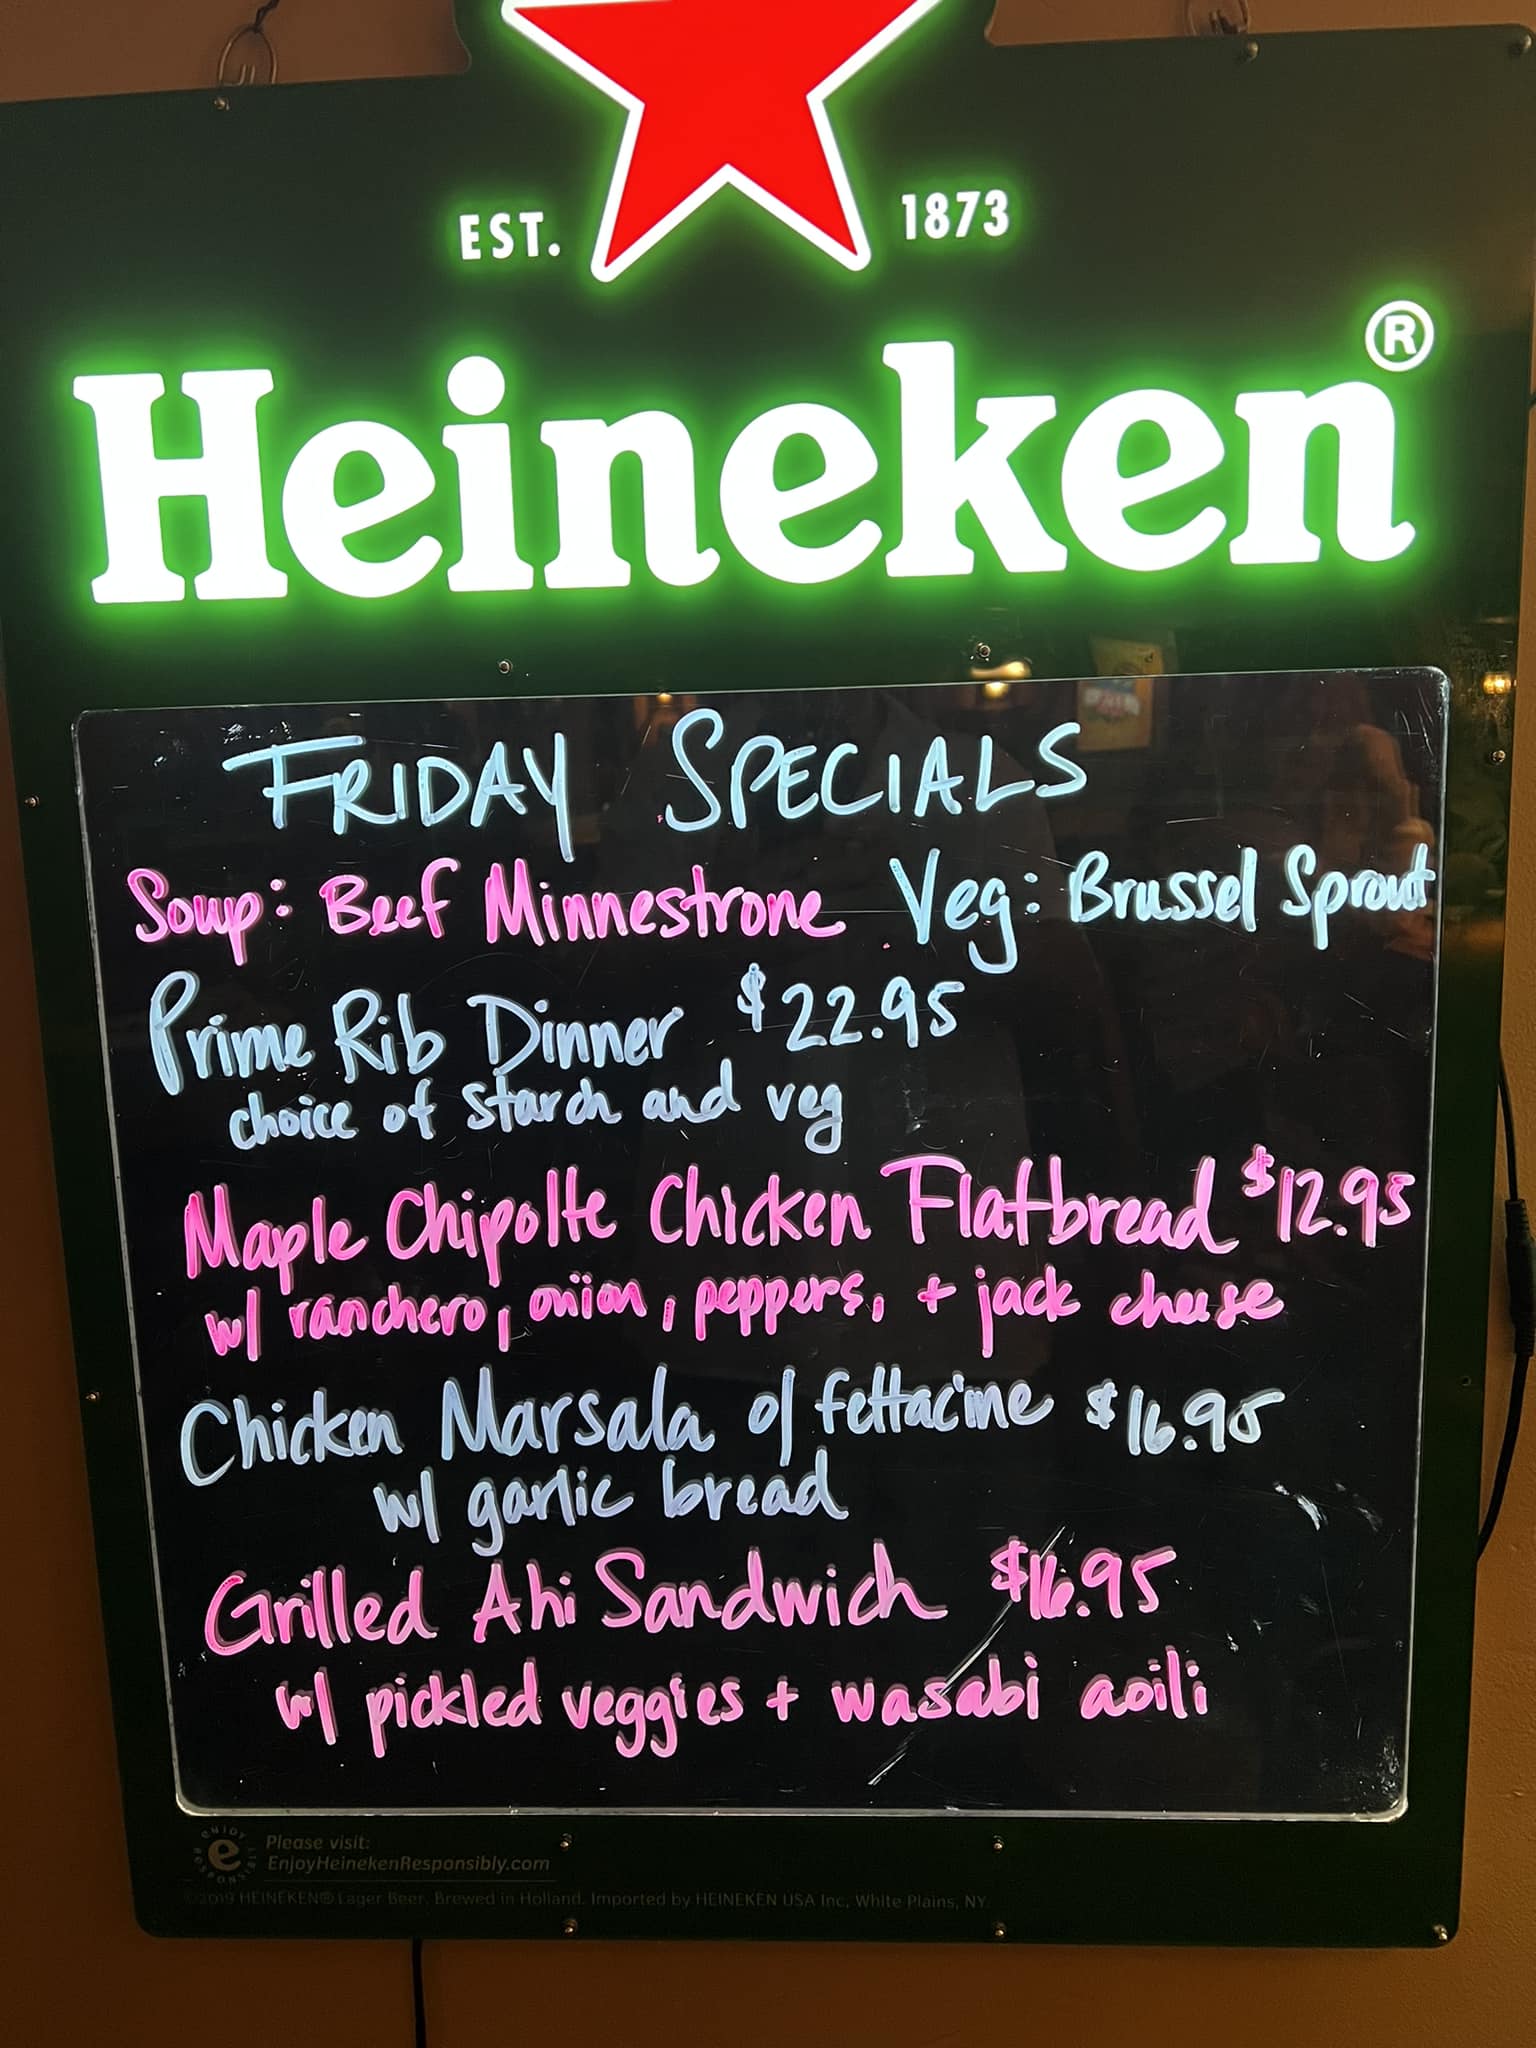 EST. 1873
Heineken®
FRIDAY SPECIALS
Soup: Beef Minnestrone Veg: Brussel Sprout
Prime Rib Dinner $22.95
choice of starch and veg
Maple Chipolte Chicken Flatbread $12.95
w/ ranchero, onion, peppers, + jack cheese
Chicken Marsala o/ fettacine $16.95
w/ garlic bread
Grilled Ahi Sandwich $16.95
w/ pickled veggies + wasabi aoili
ENJOY RESPONSIBLY
Please visit:
EnjoyHeinekenResponsibly.com
©2019 HEINEKEN® Lager Beer. Brewed in Holland. Imported by HEINEKEN USA Inc. White Plains, NY.